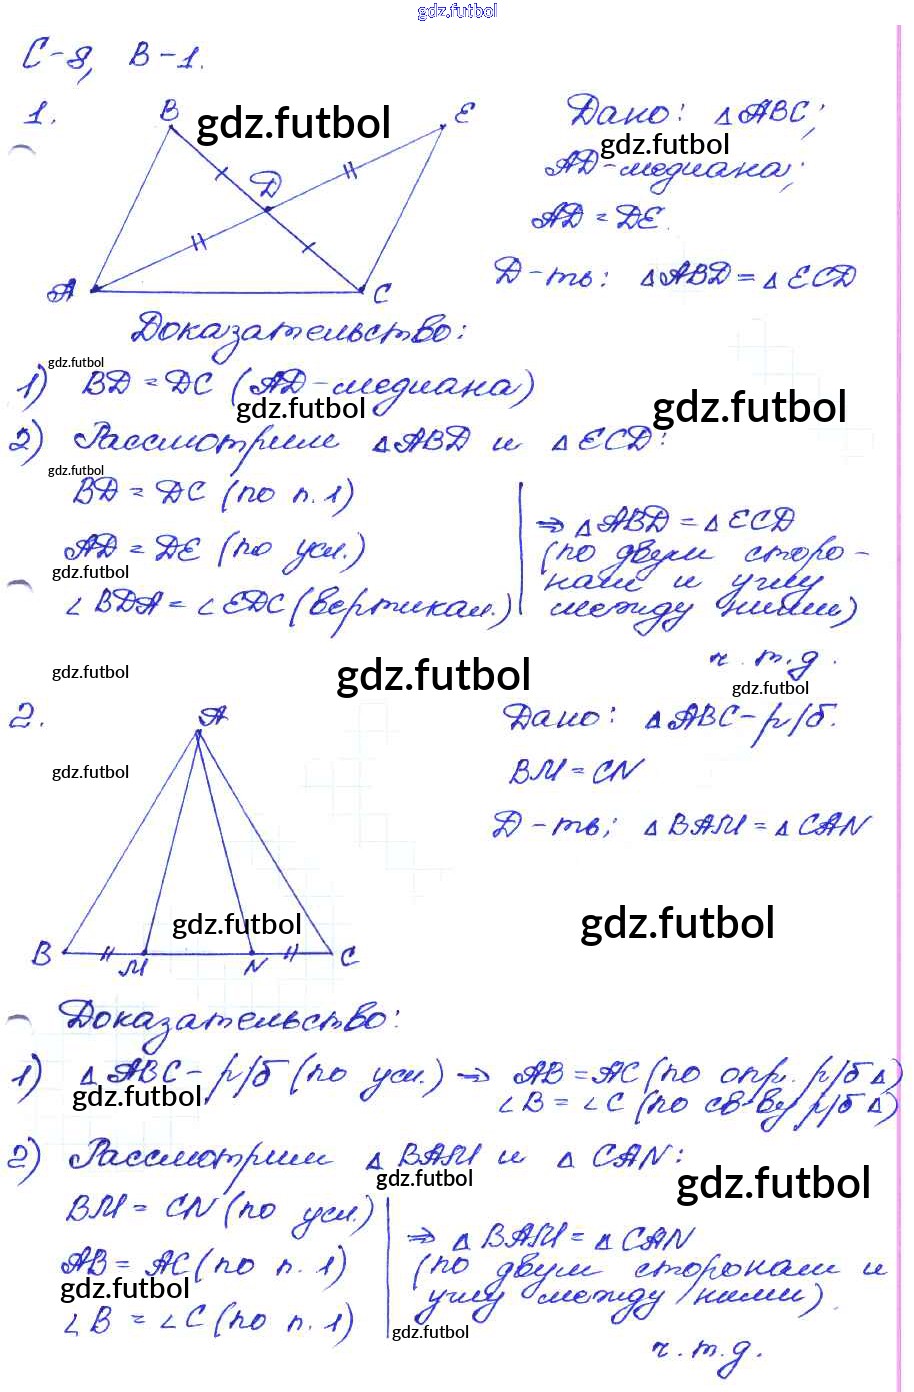 gdz.futbol
С-8, В-1.
1.
B E gdz.futbol
D
A C
Дано: △ABC;
gdz.futbol
AD-медиана;
AD = DE.
Д-ть: △ABD = △ECD
Доказательство:
gdz.futbol
1) BD = DC (AD-медиана)
gdz.futbol gdz.futbol
2) Рассмотрим △ABD и △ECD:
gdz.futbol
BD = DC (по п. 1)
AD = DE (по усл.)
gdz.futbol
∠BDA = ∠EDC (вертикал.)
⇒ △ABD = △ECD
(по двум сторо-
нам и углу
между ними)
ч.т.д.
gdz.futbol gdz.futbol gdz.futbol
2.
A
gdz.futbol
B M N C
gdz.futbol
Дано: △ABC - р/б.
BM = CN
Д-ть: △BAM = △CAN
gdz.futbol
Доказательство:
1) △ABC - р/б (по усл.) ⇒ AB = AC (по опр. р/б △)
gdz.futbol
∠B = ∠C (по св-ву р/б △)
2) Рассмотрим △BAM и △CAN:
gdz.futbol gdz.futbol
BM = CN (по усл.)
AB = AC (по п. 1)
gdz.futbol
∠B = ∠C (по п. 1)
⇒ △BAM = △CAN
(по двум сторонам и
углу между ними)
gdz.futbol
ч.т.д.